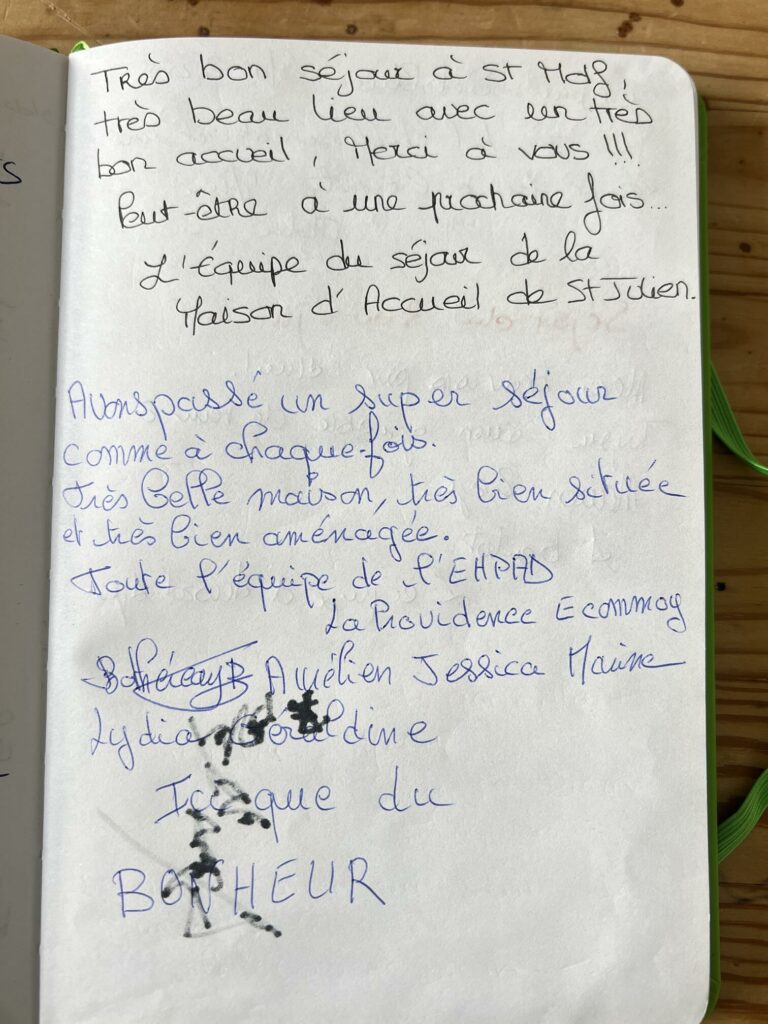 Très bon séjour à St Mdf,
très beau lieu avec un très
bon accueil, Merci à vous !!!
Peut-être à une prochaine fois...
L'équipe du séjour de la
Maison d'Accueil de St Julien.
Avons passé un super séjour
comme à chaque fois.
très belle maison, très bien située
et très bien aménagée.
Toute l'équipe de l'EHPAD
La Providence Ecommoy
Aurélien Jessica Marine
Lydia Géraldine
que du
BONHEUR